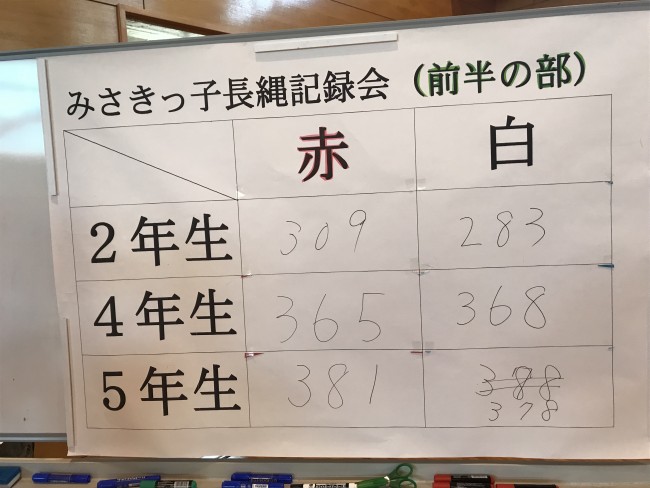 みさきっ子長縄記録会（前半の部）
赤 白
２年生 309 283
４年生 365 368
５年生 381 388
378